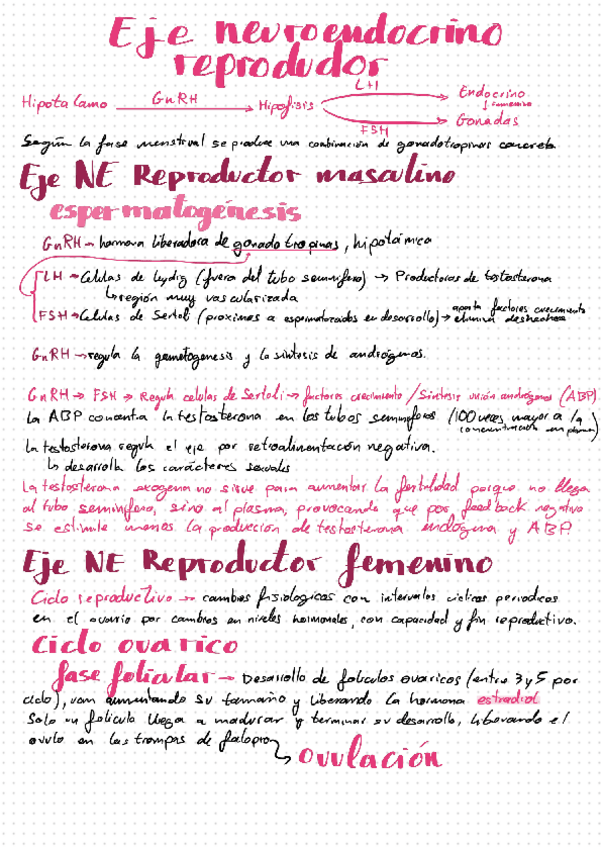 Eje neuroendocrino
reproductor
Hipotálamo GnRH Hipofisis LH Endocrino
FSH Gonadas
Según la fase menstrual se produce una combinación de gonadotropinas concreta.
Eje NE Reproductor masculino
espermatogénesis
GnRH → hormona liberadora de gonadotropinas, hipotámica
LH → Celulas de Leydig (fuera del tubo seminifero) → Productoras de testosterona
↳ región muy vascularizada
FSH → Celulas de Sertoli (proximas a espermatozoides en desarrollo) → aporta factores crecimiento
elimina deshechos
GnRH → regula la gametogenesis y la sintesis de andrógenos.
GnRH → FSH → Regula celulas de Sertoli → factores crecimiento / Sintesis unión andrógenos (ABP)
La ABP concentra la testosterona en los tubos seminiferos (100 veces mayor a la
concentración en plasma)
La testosterona regula el eje por retroalimentación negativa.
↳ desarrolla los carácteres sexuales
La testosterona exogena no sirve para aumentar la fertilidad porque no llega
al tubo seminifero, sino al plasma, provocando que por feedback negativo
se estimule menos la producción de testosterona endógena y ABP.
Eje NE Reproductor femenino
Ciclo reproductivo → cambios fisiologicos con intervalos ciclicos periodicos
en el ovario por cambios en niveles hormonales, con capacidad y fin reproductivo.
Ciclo ovarico
fase folicular → Desarrollo de foliculos ovaricos (entre 3 y 5 por
ciclo), van aumentando su tamaño y liberando la hormona estradiol
Solo un foliculo llega a madurar y terminar su desarrollo, liberando el
ovulo en las trompas de falopio
↳ ovulación